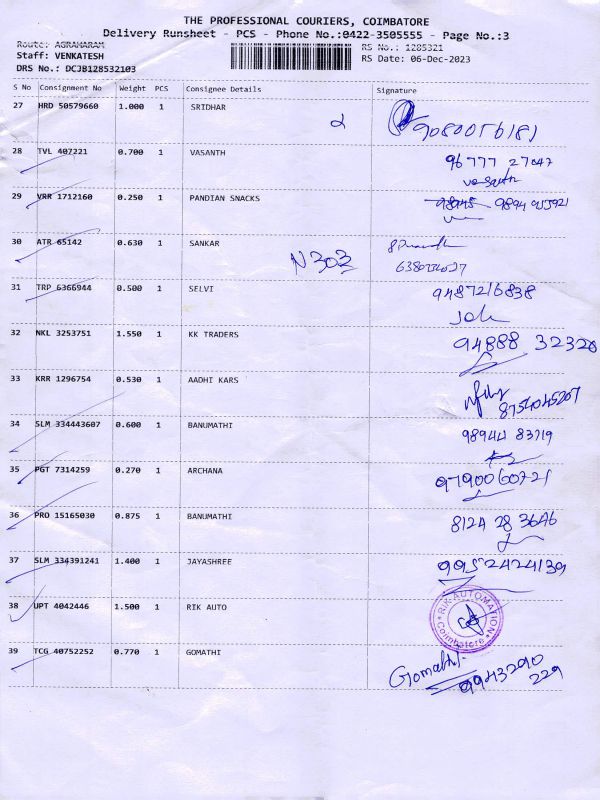 THE PROFESSIONAL COURIERS, COIMBATORE
Delivery Runsheet - PCS - Phone No.:0422-3505555 - Page No.:3
Route: AGRAHARAM
RS No.: 1285321
Staff: VENKATESH
RS Date: 06-Dec-2023
DRS No.: DCJB128532103
S No Consignment No Weight PCS Consignee Details Signature
27 HRD 50579660 1.000 1 SRIDHAR
9080056181
28 TVL 407221 0.700 1 VASANTH 96777 27047
vasanth
29 VRR 1712160 0.250 1 PANDIAN SNACKS
30 ATR 65142 0.630 1 SANKAR
N303
31 TRP 6366944 0.500 1 SELVI 9487216838
32 NKL 3253751 1.550 1 KK TRADERS 94888 32320
33 KRR 1296754 0.530 1 AADHI KARS
8754045207
34 SLM 334443607 0.600 1 BANUMATHI 98944 83719
35 PGT 7314259 0.270 1 ARCHANA 9790060721
36 PRO 15165030 0.875 1 BANUMATHI 8124 28 3646
37 SLM 334391241 1.400 1 JAYASHREE 9952424139
38 UPT 4042446 1.500 1 RIK AUTO RIK AUTOMATION Coimbatore
39 TCG 40752252 0.770 1 GOMATHI Gomathi
9943290
229